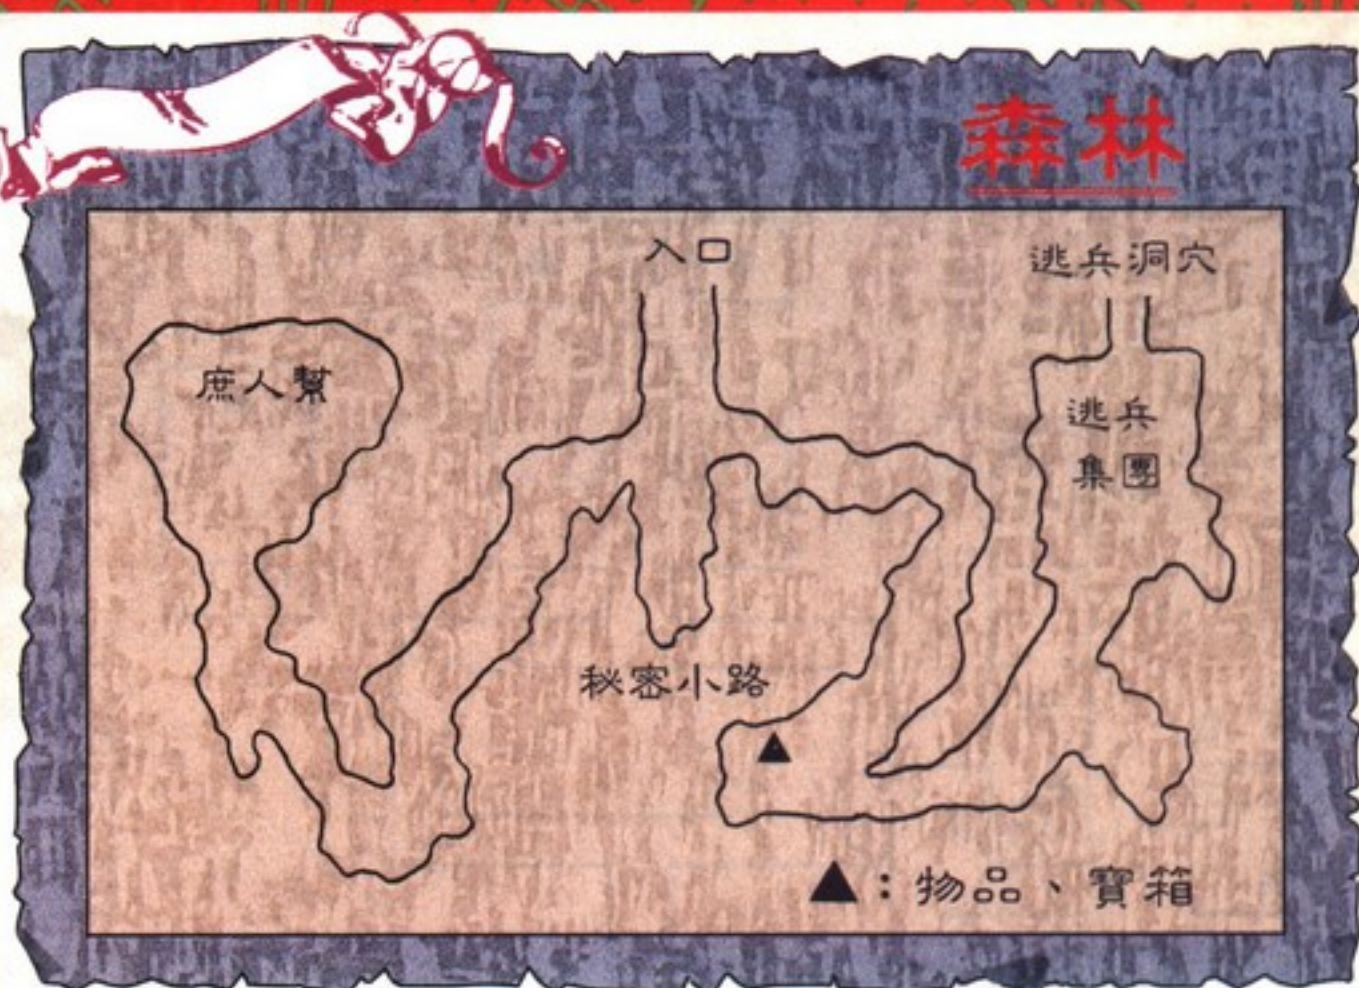 森林
入口
逃兵洞穴
庶人幫
逃兵
集團
秘密小路
▲：物品、寶箱